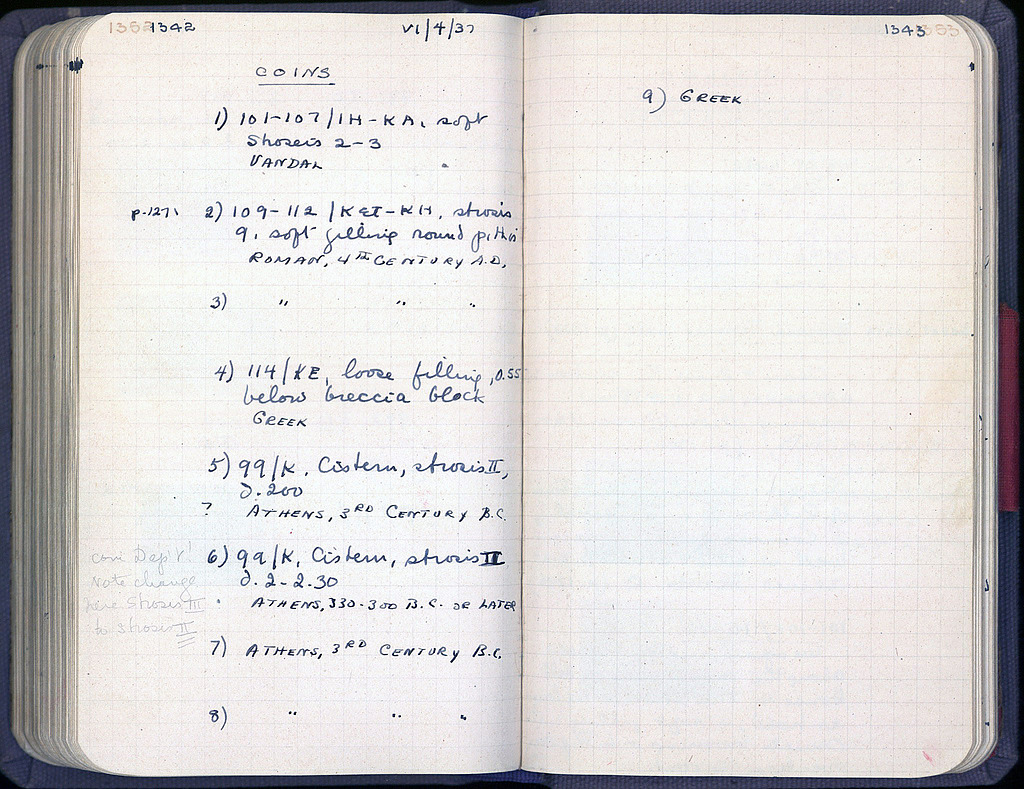 1352 1342
VI/4/37
COINS
1) 101-107/IH-KA, soft
Strosis 2-3
VANDAL
p.1271
2) 109-112/KΣΤ-KH, strosis
9, soft filling round pithos
ROMAN, 4TH CENTURY A.D.
3) " " "
4) 114/KE, loose filling, 0.55
below breccia block
GREEK
5) 99/K, Cistern, strosis II,
d. 200
? ATHENS, 3RD CENTURY B.C.
6) 99/K, Cistern, strosis II
d. 2-2.30
ATHENS, 330-300 B.C. OR LATER
coin Dep't!
Note change
here Strosis III
to strosis II
7) ATHENS, 3RD CENTURY B.C.
8) " " "
1343 1353
9) GREEK